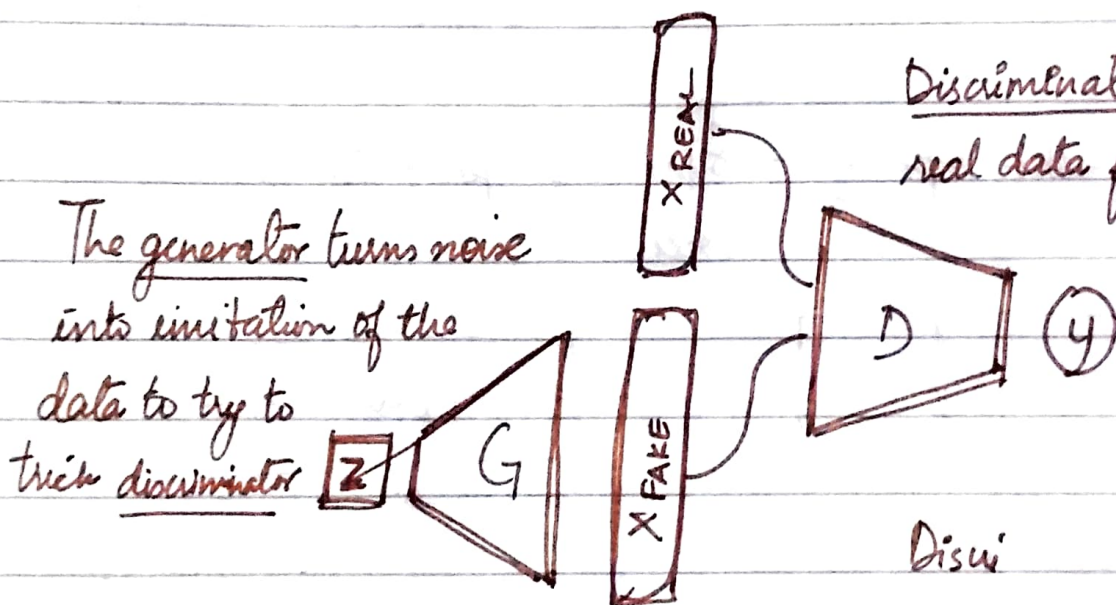 Discriminat
real data f
X REAL
The generator turns noise
into imitation of the
data to try to
trick discriminator
Z
G
X FAKE
D
y
Discri